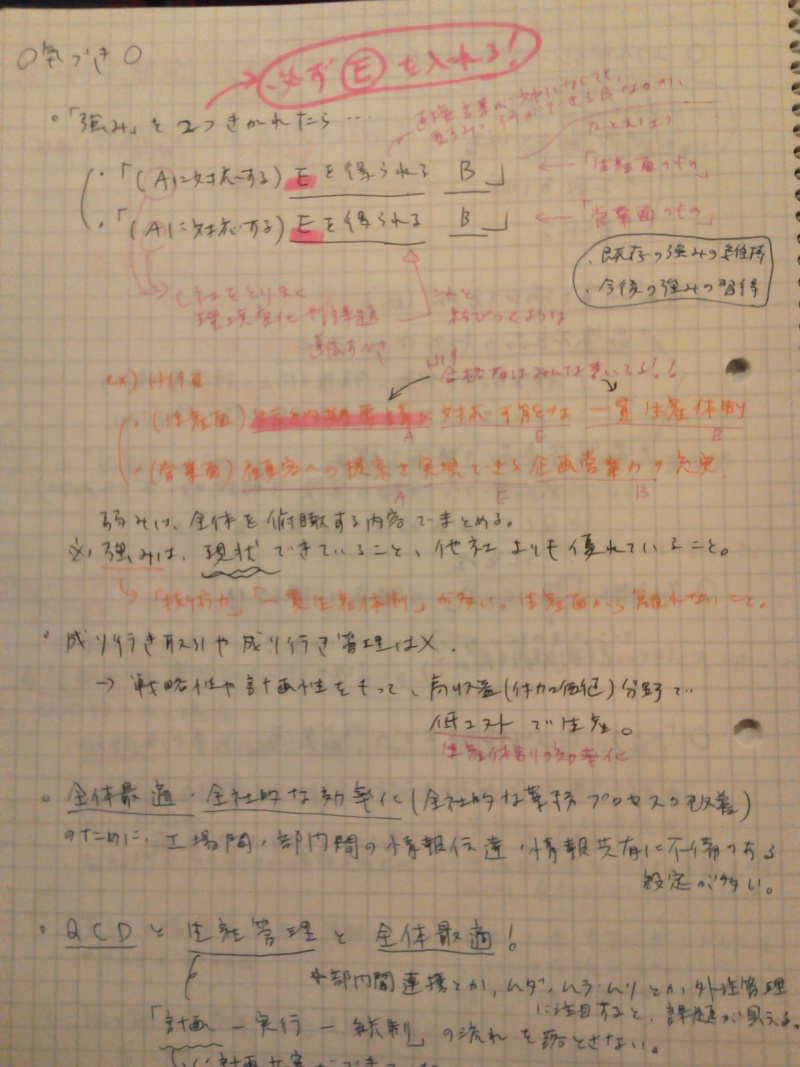 ○気づき○
必ずⒺを入れる!
・「強み」を2つきかれたら…
たとえば?
・「(Aに対応する) Eを得られる B」 ←「生産面のもの」
・「(Aに対応する) Eを得られる B」 ←「営業面のもの」
・既存の強みの
・今後の強みの習得
C社をとりまく
環境変化や課題
これと
結びつくような
ex) H19Ⅲ
合格者はみんな書いてる!!
・(生産面) に対応可能な 一貫生産体制
A E B
・(営業面) 顧客への提案を実現できる企画営業力の充実
A E B
弱みは、全体を俯瞰する内容でまとめる。
※強みは、現状できていること、他社よりも優れていること。
→「技術力」「一貫生産体制」が多い。生産面から離れないこと。
・成り行き取引や成り行き管理は×.
→戦略性や計画性をもって、高収益(付加価値)分野で
低コストで生産。
生産体制の効率化
・全体最適・全社的な効率化(全社的な業務プロセスの改善)
のために、工場間・部内間の情報伝達・情報共有に不備のある
設定が多い。
・QCDと生産管理と全体最適!
*部内間連携とか、ムダ・ムラ・ムリとか、外注管理
に注目すると、課題が見える。
「計画ー実行ー統制」の流れを落とさない。